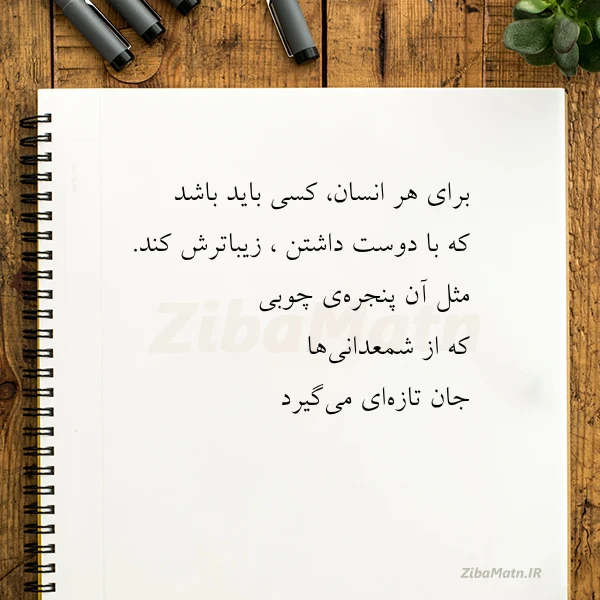 برای هر انسان، کسی باید باشد
که با دوست داشتن ، زیباترش کند.
مثل آن پنجره‌ی چوبی
که از شمعدانی‌ها
جان تازه‌ای می‌گیرد
ZibaMatn
ZibaMatn.IR